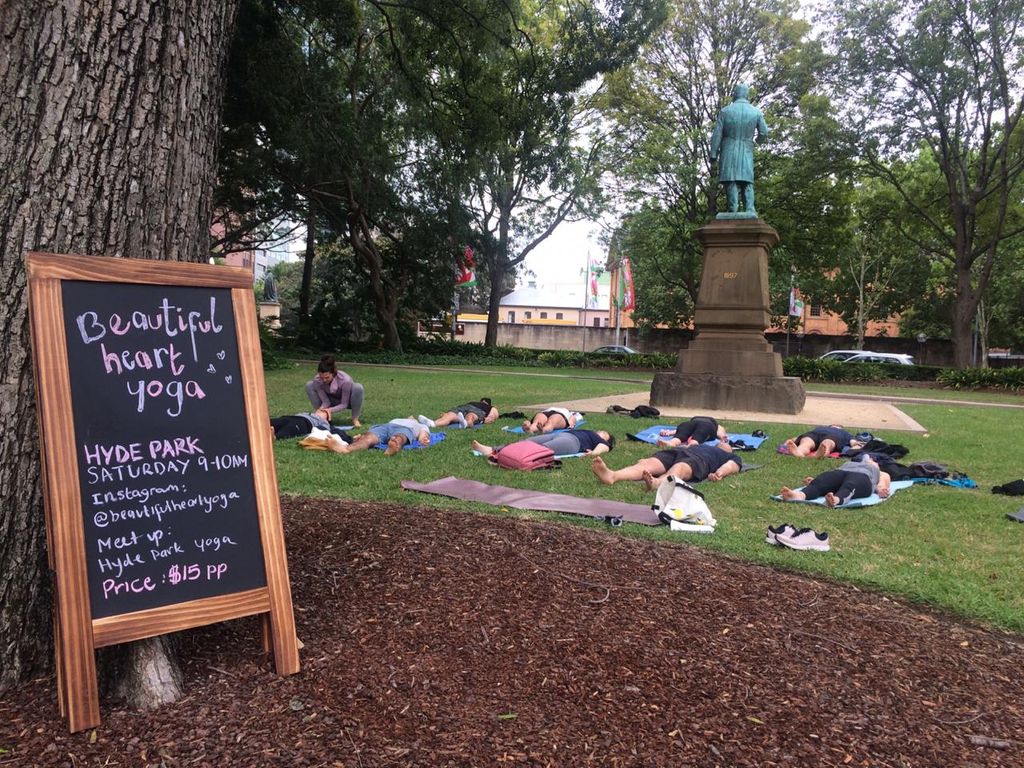 Beautiful
heart
yoga
HYDE PARK
SATURDAY 9-10AM
Instagram:
@beautifulheartyoga
Meet up:
Hyde Park Yoga
Price: $15 PP
1897